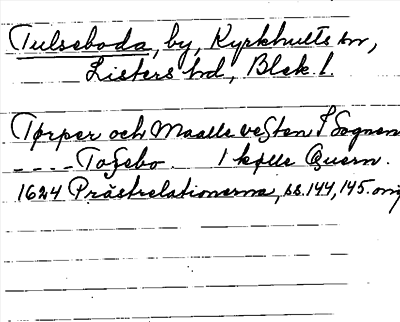 Tulseboda, by, Kyrkhults sn,
Listers hd, Blek. l.
Tørper och Maalle vesten I Sognen
---- Tolsebo. 1 kølle Quern.
1624 Prästrelationerna, ss. 144, 145. orig